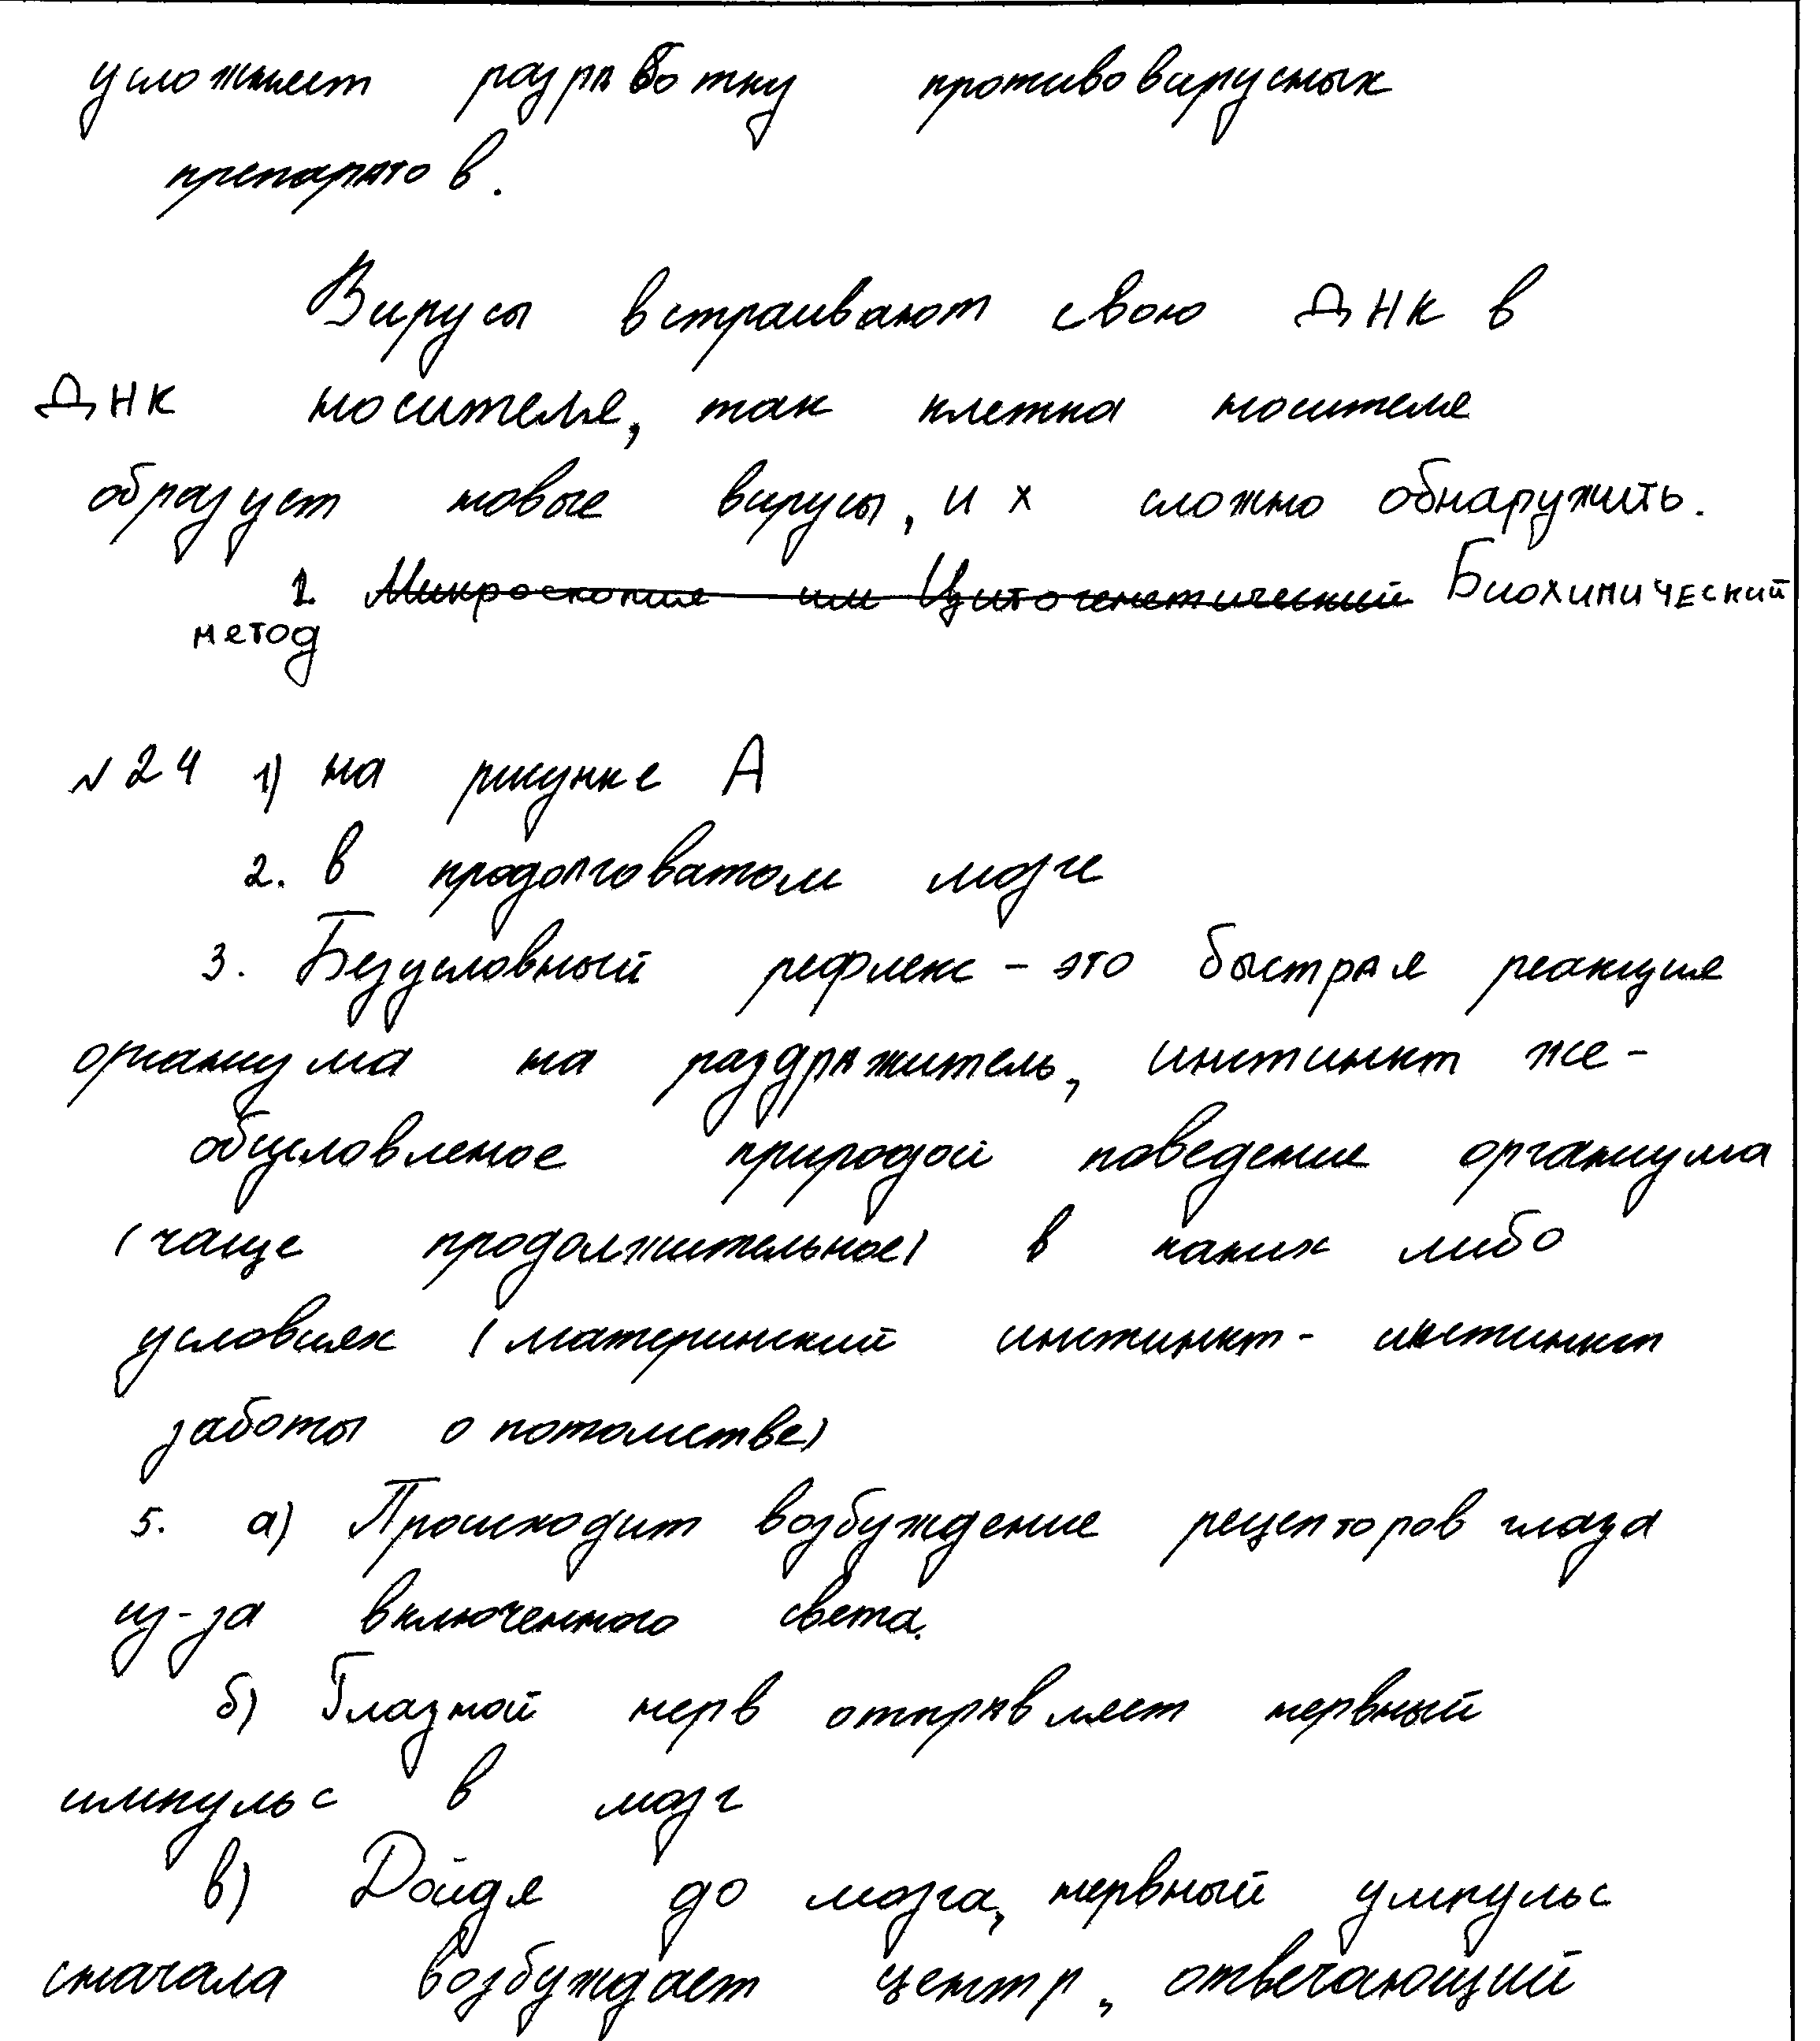 усложняет разработку противовирусных
препаратов.
Вирусы встраивают свою ДНК в
ДНК носителя, так клетка носителя
образует новые вирусы, их сложно обнаружить.
1. Микроскопия или Цитогенетический Биохимический
метод
№24 1) на рисунке А
2. в продолговатом мозге
3. Безусловный рефлекс - это быстрая реакция
организма на раздражитель, инстинкт же -
обусловленое природой поведение организма
(чаще продолжительное) в каких либо
условиях (материнский инстинкт - инстинкт
заботы о потомстве)
5. а) Происходит возбуждение рецепторов глаза
из-за включенного света.
б) Глазной нерв отправляет нервный
импульс в мозг
в) Дойдя до мозга, нервный умпульс
сначала возбуждает центр, отвечающий